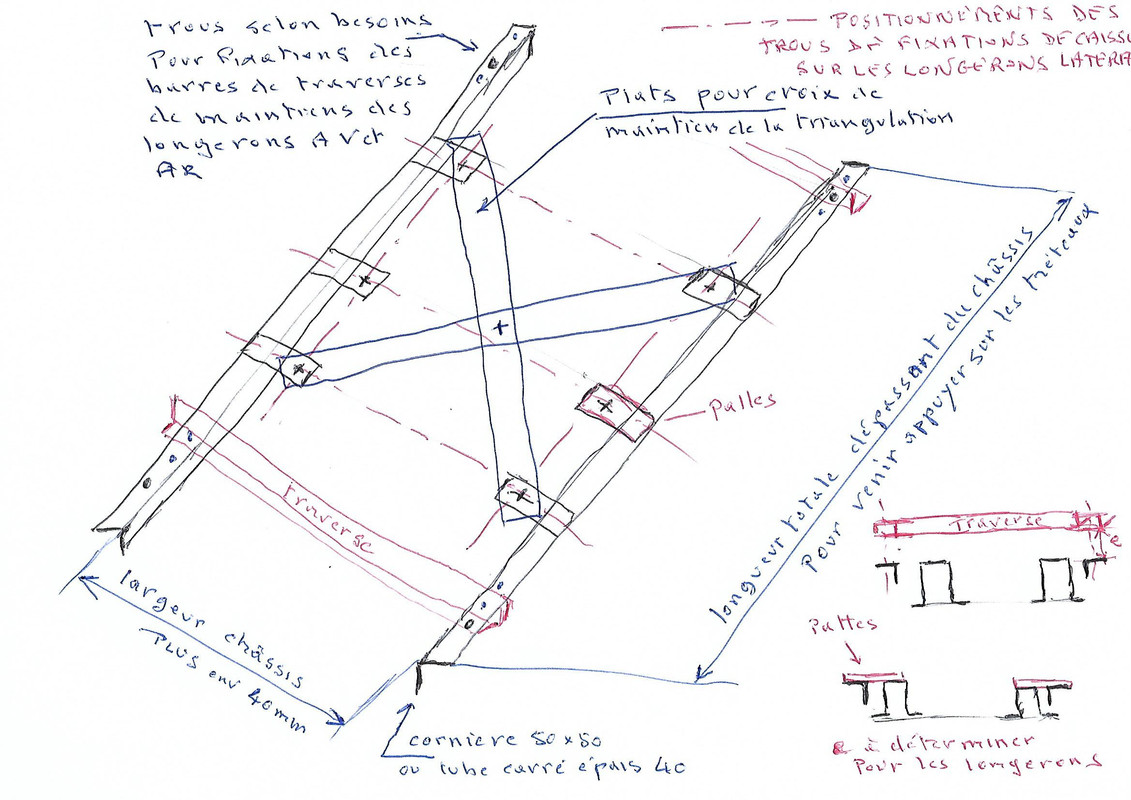 trous selon besoins
Pour fixations des
barres de traverses
de maintiens des
longerons AV et
AR
POSITIONNEMENTS DES
TROUS DE FIXATIONS DE CAISSE
SUR LES LONGERONS LATERA
Plats pour croix de
maintien de la triangulation
longueur totale dépassant du châssis
Pour venir appuyer sur les tréteaux
Pattes
traverse
largeur châssis
PLUS env 40mm
corniere 50x50
ou tube carré épais 40
Traverse
e
Pattes
e à déterminer
Pour les longerons